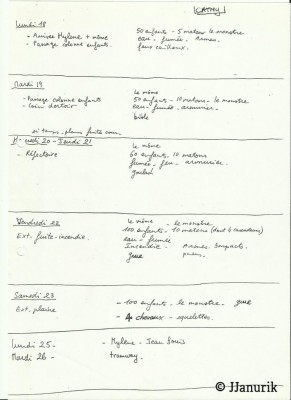 CATHY
Lundi 18
- Arrivée Mylène + même
- Passage colonne enfants.
50 enfants - 5 matons le monstre
eau - fumée. Armes.
faux cailloux.
Mardi 19
- Passage colonne enfants
- Coin dortoir
le même
50 enfants - 10 matons - le monstre
eau - fumée. armurier.
bible
si temps : plans fuite cour
Mercredi 20 - Jeudi 21
- Réfectoire
le même
60 enfants. 10 matons
fumée - feu - armurier
Vendredi 22
Ext. fuite - incendie.
le même - le monstre
100 enfants. 10 matons (dont 6 incendieurs)
eau - fumée
Incendie - Armes Impacts.
grue
pneus
Samedi 23
Ext. plaine
- 100 enfants. le monstre. grue
- 4 chevaux - squelettes.
Lundi 25 -
Mardi 26 -
- Mylène - Jean Louis
tramway.
© JJanurik